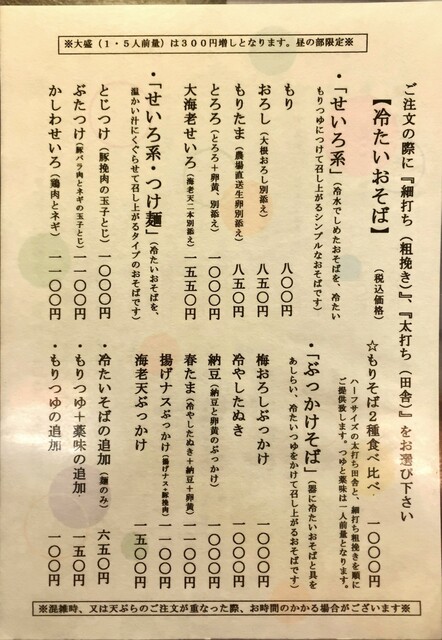 ※大盛（１・５人前量）は３００円増しとなります。昼の部限定※
ご注文の際に『細打ち（粗挽き）』、『太打ち（田舎）』をお選び下さい
【冷たいおそば】
（税込価格）
☆もりそば２種食べ比べ　一〇〇〇円
ハーフサイズの太打ち田舎と、細打ち粗挽きを順に
ご提供致します。つゆと薬味は一人前量となります。
・「せいろ系」（冷水でしめたおそばを、冷たい
もりつゆにつけて召し上がるシンプルなおそばです）
もり　八〇〇円
おろし（大根おろし別添え）　八五〇円
もりたま（農場直送生卵別添え）　八五〇円
とろろ（とろろ＋卵黄、別添え）　一〇〇〇円
大海老せいろ（海老天二本別添え）　一五五〇円
・「せいろ系・つけ麺」（冷たいおそばを、
温かい汁にくぐらせて召し上がるタイプのおそばです）
とじつけ（豚挽肉の玉子とじ）　一〇〇〇円
ぶたつけ（豚バラ肉とネギの玉子とじ）　一一〇〇円
かしわせいろ（鶏肉とネギ）　一一〇〇円
・「ぶっかけそば」（器に冷たいおそばと具を
あしらい、冷たいつゆをかけて召し上がるおそばです）
梅おろしぶっかけ　一〇〇〇円
冷やしたぬき　九〇〇円
納豆（納豆と卵黄のぶっかけ）　一〇〇〇円
春たま（冷やしたぬき＋納豆＋卵黄）　一一〇〇円
揚げナスぶっかけ（揚げナス＋豚挽肉）　一一〇〇円
海老天ぶっかけ　一五〇〇円
・冷たいそばの追加（麺のみ）　六五〇円
・もりつゆ＋薬味の追加　一五〇円
・もりつゆの追加　一〇〇円
※混雑時、又は天ぷらのご注文が重なった際、お時間のかかる場合がございます※